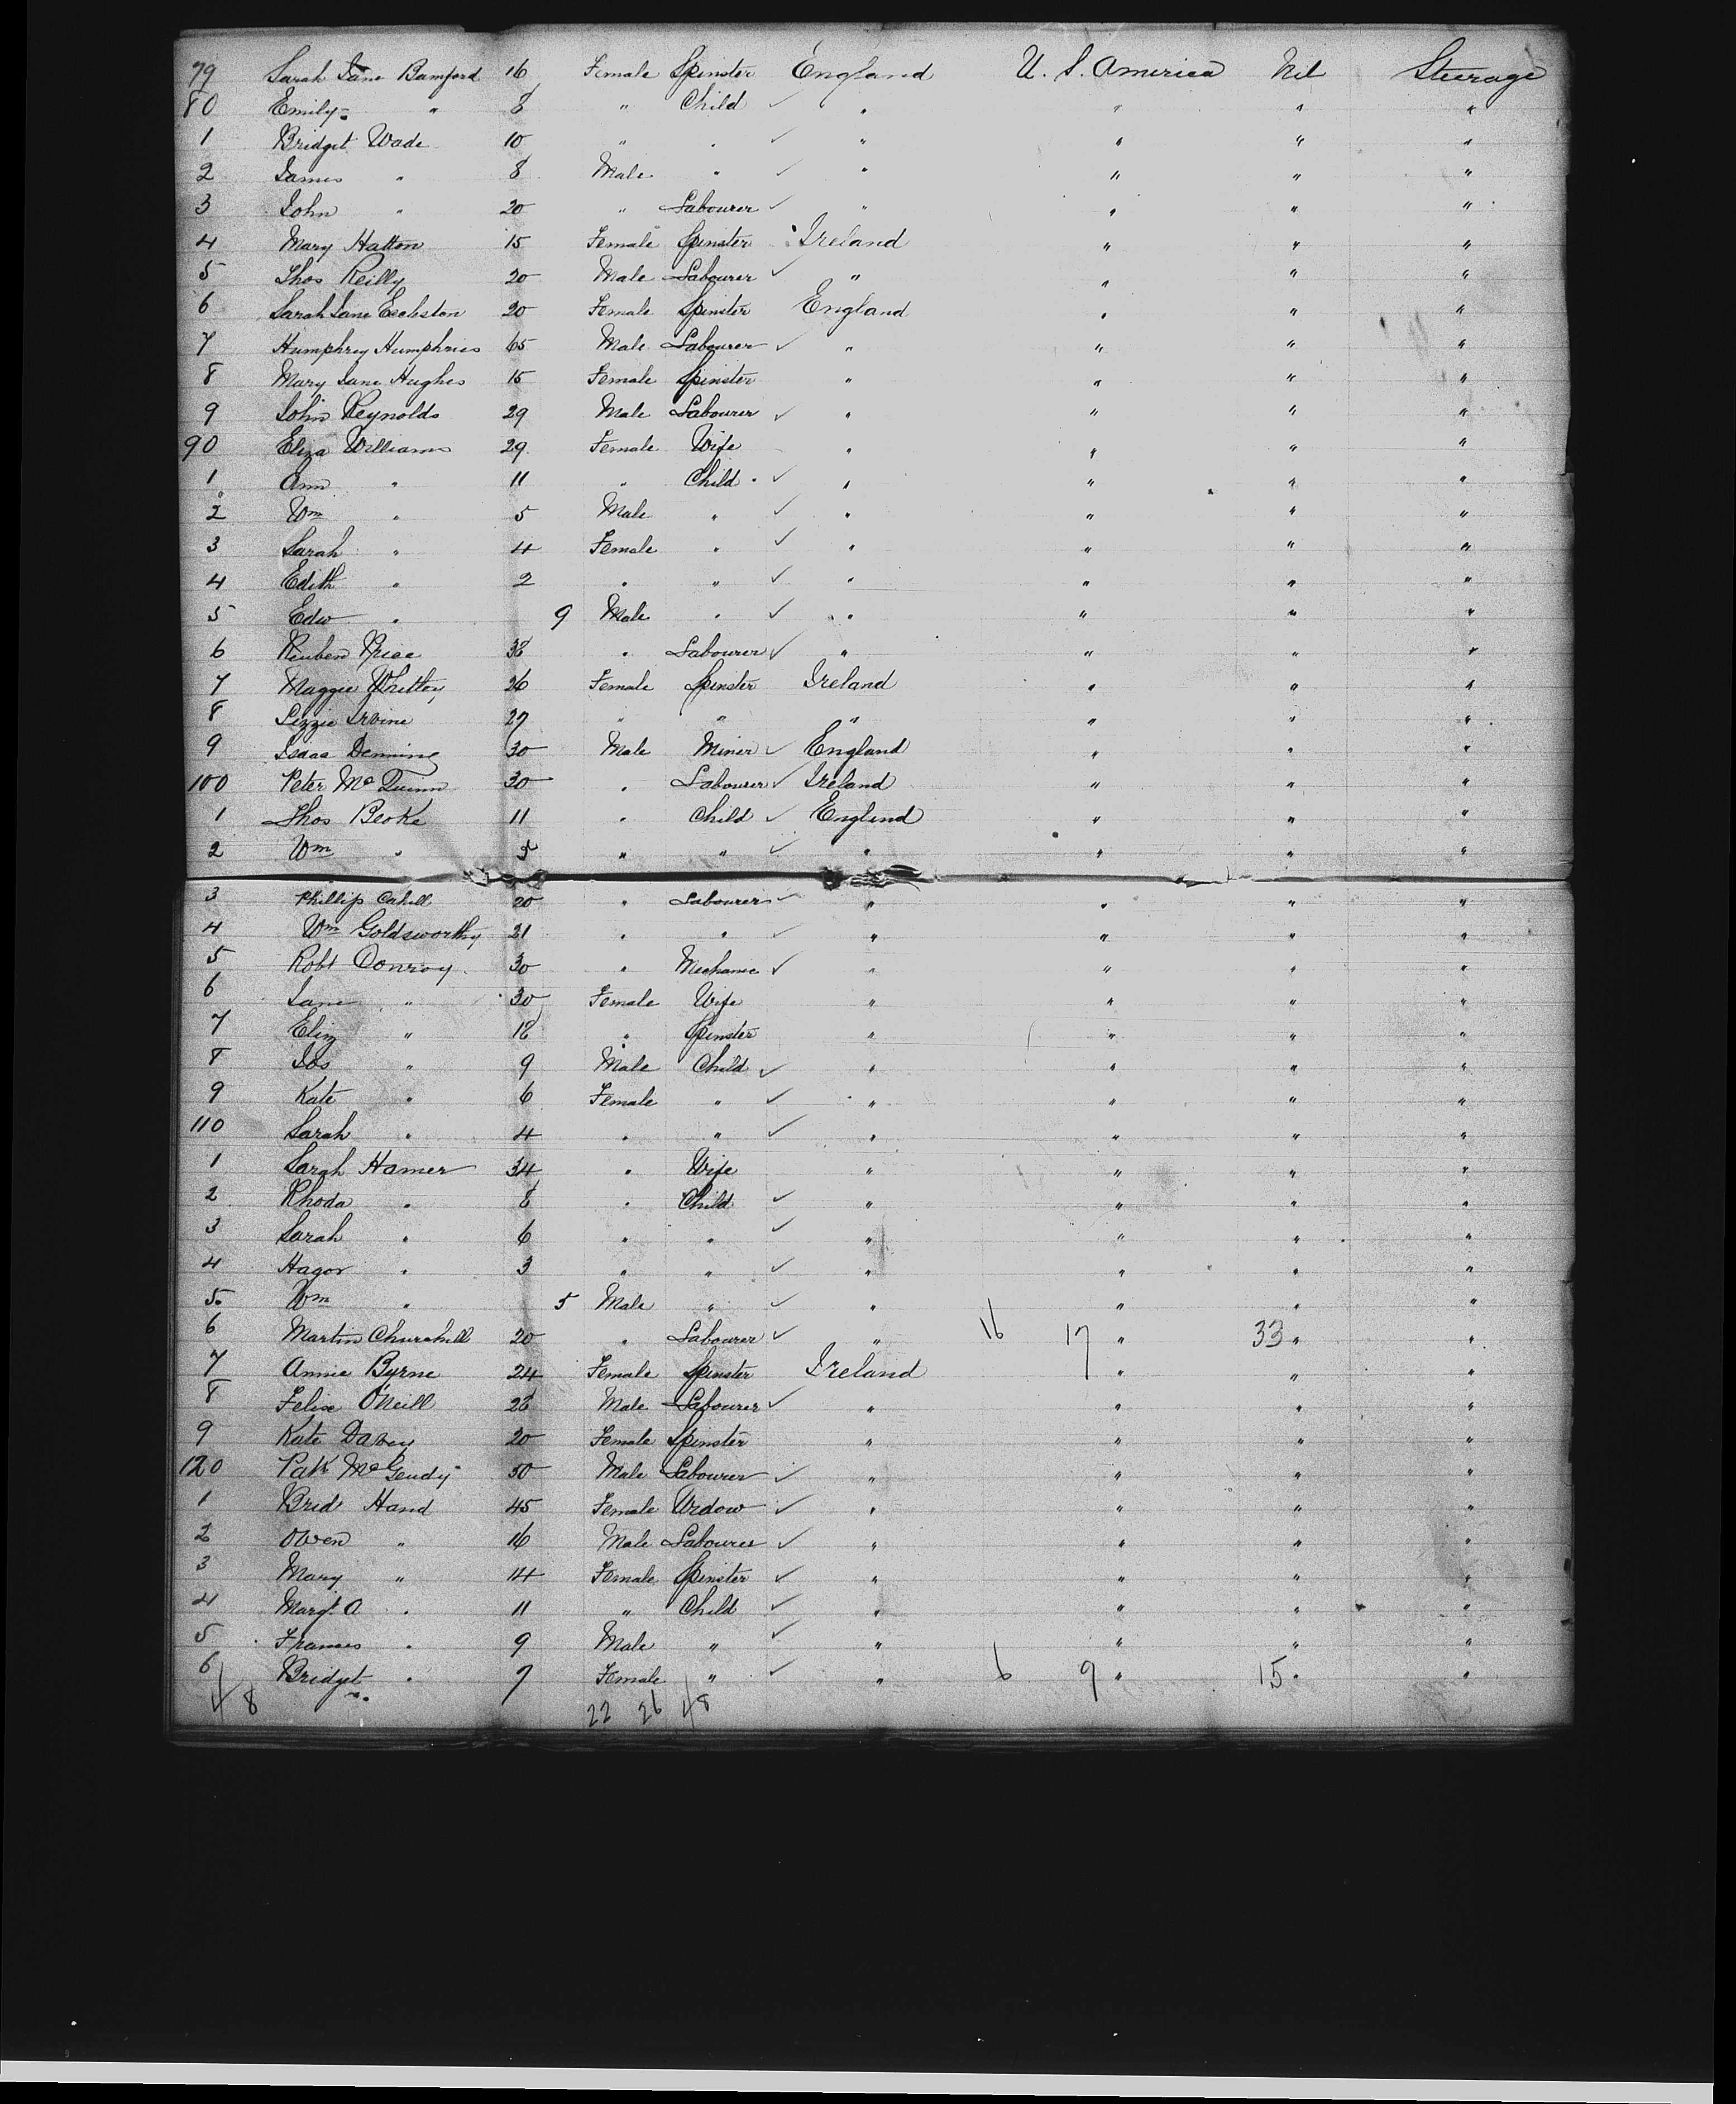 79 Sarah Jane Bamford 16 Female Spinster England U. S. America Nil Steerage
80 Emily " 8 " Child ✓ " " " "
1 Bridget Wade 10 " " ✓ " " " "
2 James " 8 Male " ✓ " " " "
3 John " 20 " Labourer ✓ " " " "
4 Mary Hatton 15 Female Spinster Ireland " " "
5 Thos Reilly 20 Male Labourer ✓ " " " "
6 Sarah Jane Eccleston 20 Female Spinster England " " "
7 Humphrey Humphries 65 Male Labourer ✓ " " " "
8 Mary Jane Hughes 15 Female Spinster " " " "
9 John Reynolds 29 Male Labourer ✓ " " " "
90 Eliza Williams 29 Female Wife " " " "
1 Ann " 11 " Child ✓ " " " "
2 Wm " 5 Male " ✓ " " " "
3 Sarah " 4 Female " ✓ " " " "
4 Edith " 2 " " ✓ " " " "
5 Edw " 9 Male " ✓ " " " "
6 Reuben Price 38 " Labourer ✓ " " " "
7 Maggie Whitty 26 Female Spinster Ireland " " "
8 Lizzie Irvine 27 " " " " " "
9 Isaac Denning 30 Male Miner ✓ England " " "
100 Peter McQuinn 30 " Labourer ✓ Ireland " " "
1 Thos Beoke 11 " Child ✓ England " " "
2 Wm " " " ✓ " " " "
3 Phillip Cahill 20 " Labourer ✓ " " " "
4 Wm Goldsworthy 21 " " ✓ " " " "
5 Robt Conroy 30 " Mechanic ✓ " " " "
6 Jane " 30 Female Wife " " " "
7 Eliz " " Spinster " " " "
8 Jos " 9 Male Child ✓ " " " "
9 Kate " 6 Female " ✓ " " " "
110 Sarah " 4 " " ✓ " " " "
1 Sarah Hamer 34 " Wife " " " "
2 Rhoda " 8 " Child ✓ " " " "
3 Sarah " 6 " " ✓ " " " "
4 Hagar " 3 " " ✓ " " " "
5 Wm " 5 Male " ✓ " " " "
6 Martin Churchill 20 " Labourer ✓ " 16 17 " 33 " "
7 Annie Byrne 24 Female Spinster Ireland " " "
8 Felix O'Neill 28 Male Labourer ✓ " " " "
9 Kate Davey 20 Female Spinster " " " "
120 Patk McGendy 50 Male Labourer ✓ " " " "
1 Bridt Hand 45 Female Widow ✓ " " " "
2 Owen " 16 Male Labourer ✓ " " " "
3 Mary " 14 Female Spinster ✓ " " " "
4 Margt A " 11 " Child ✓ " " " "
5 Frances " 9 Male " ✓ " " " "
6 Bridget " 7 Female " ✓ " 6 9 " 15 " "
48 22 26 48